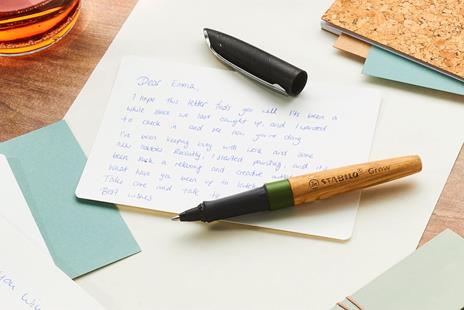 Dear Emma,
I hope this letter finds you well. It's been a
while since we last caught up, and I wanted
to check in and see how you're doing.
I've been keeping busy with work and some
new hobbies. Recently, I started painting, and it's
been such a relaxing and creative
What have you been up to lately?
Take care and talk to
Best wishes
STABILO Grow
you